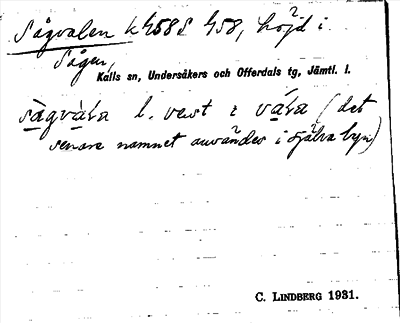 Sågvalen k 458 S 458, höjd i
Sågen,
Kalls sn, Undersåkers och Offerdals tg, Jämtl. l.
l. vest i (det
senare namnet användes i själva byn)
C. LINDBERG 1931.